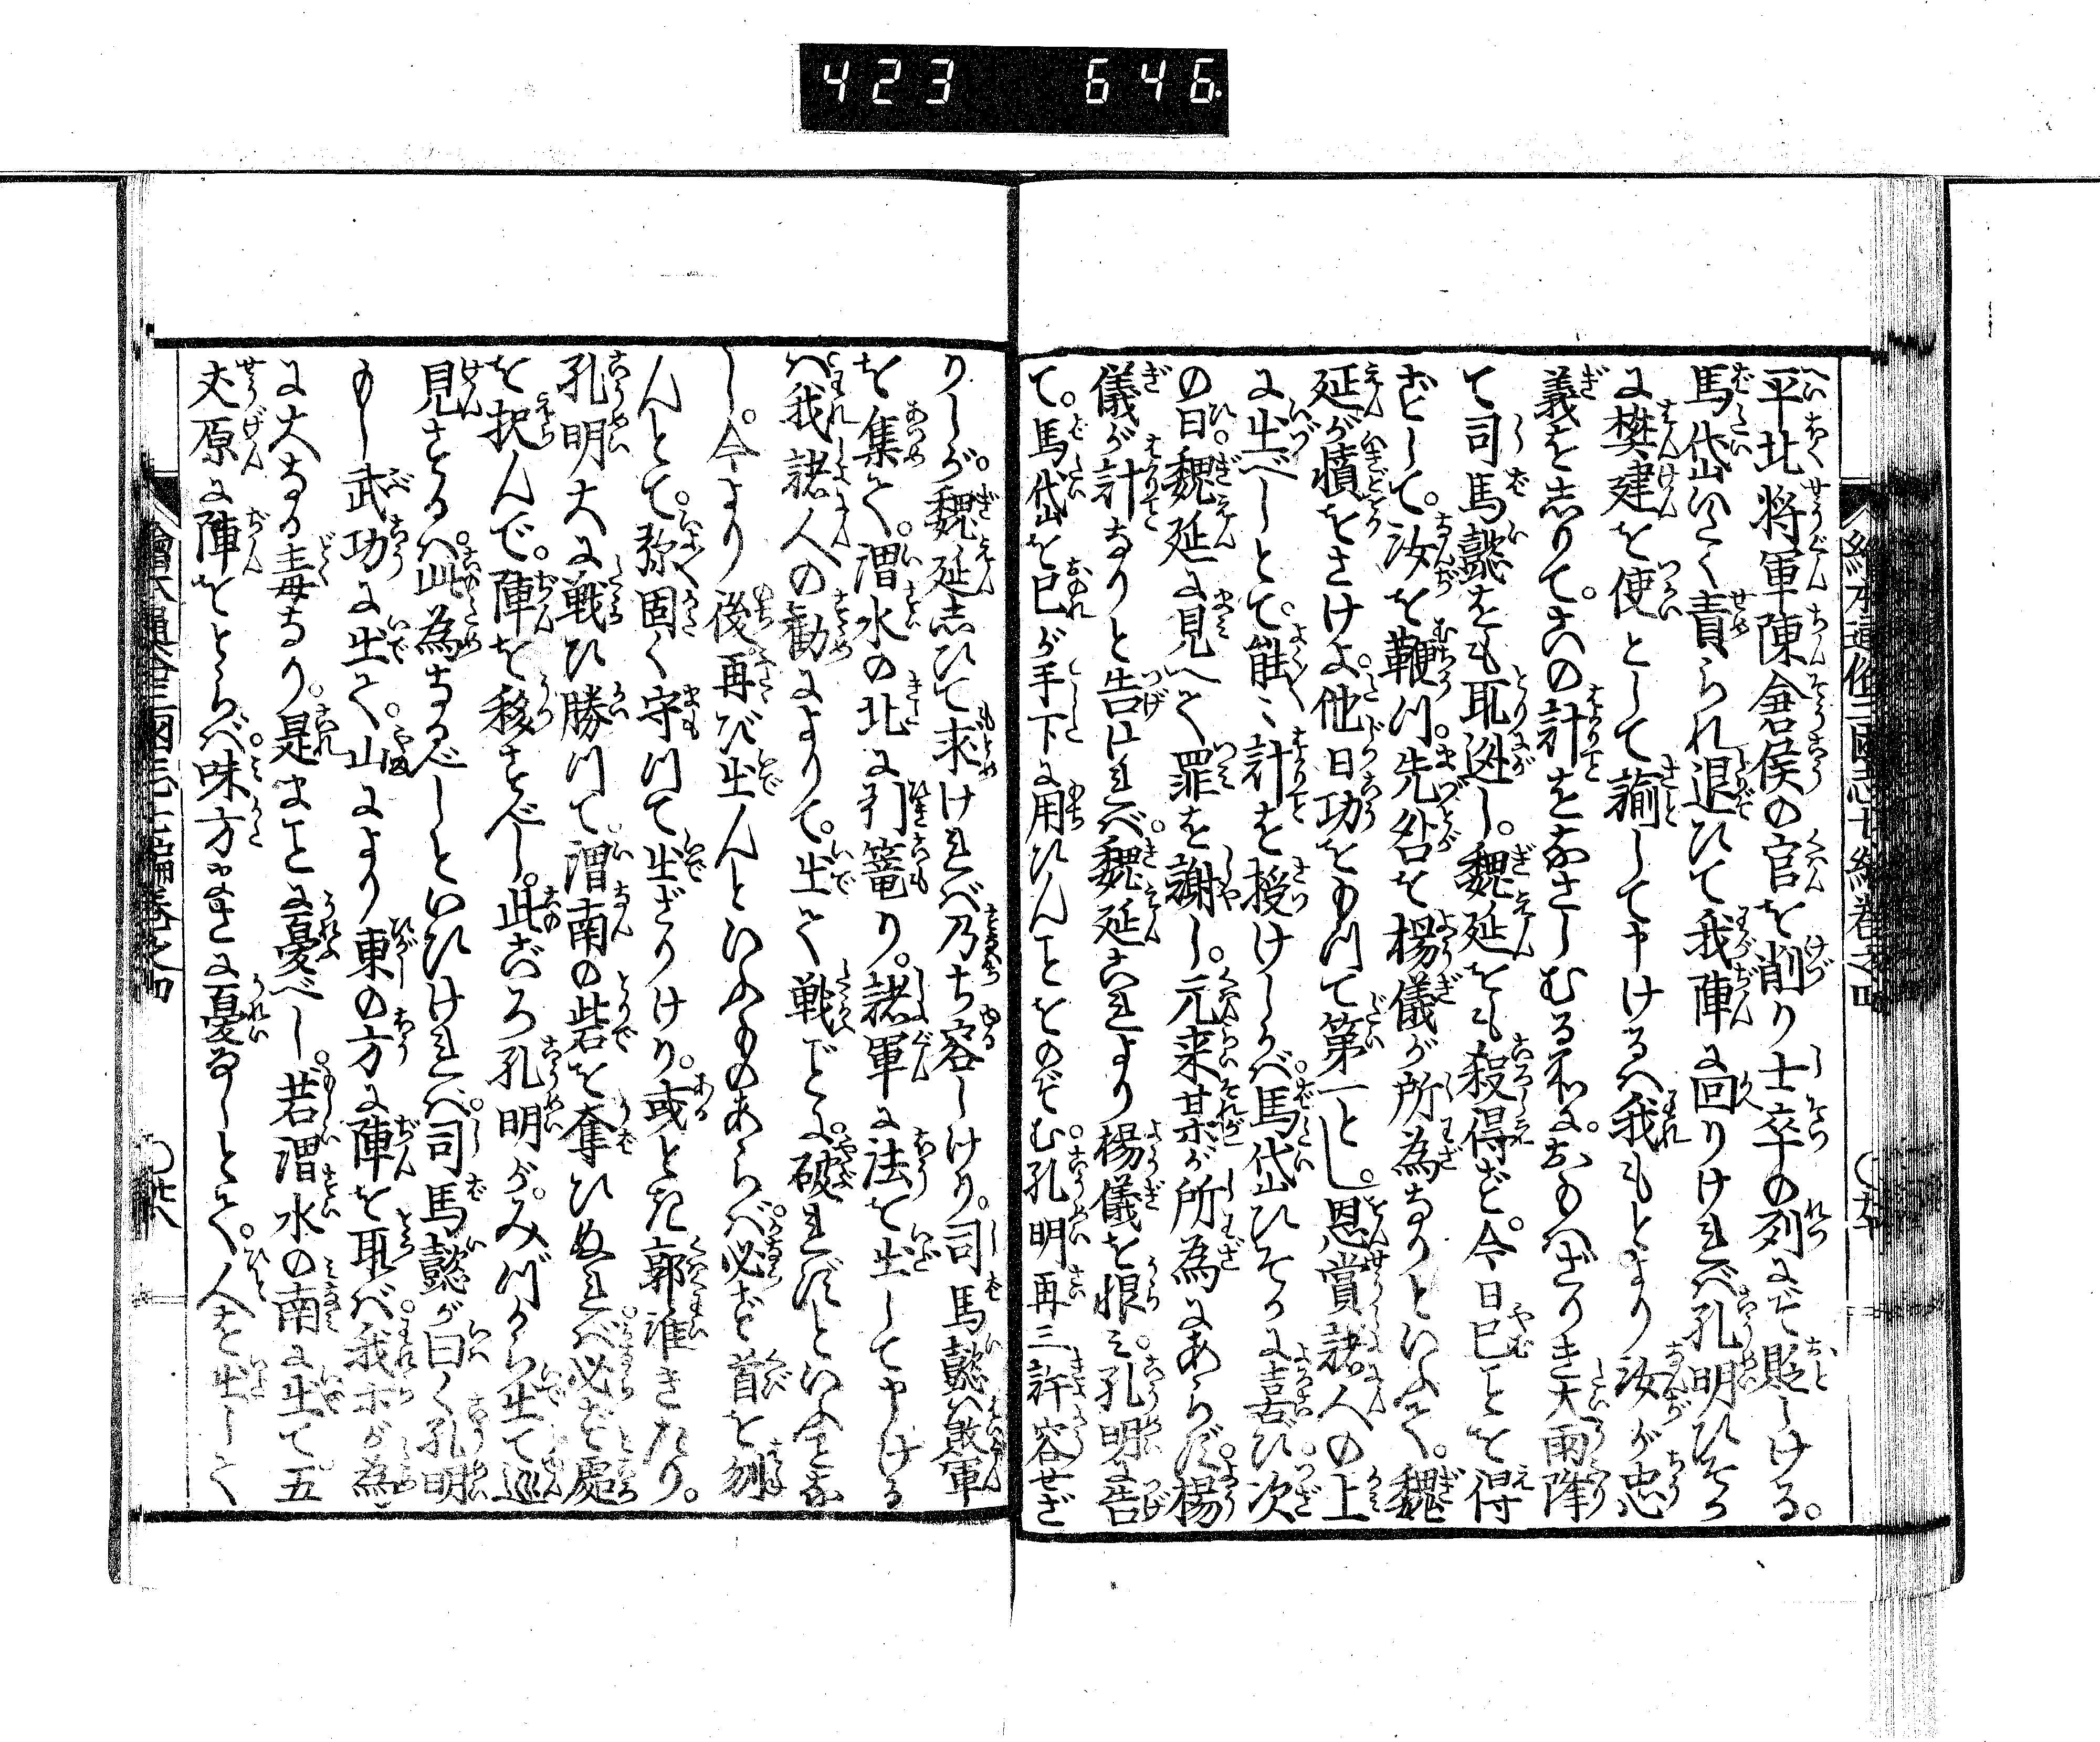 423 646
平北将軍陳倉侯の官を削り士卒の列にぞ貶しける。
馬岱いたく責られ退ひて我陣に回りければ孔明ひそか
に樊建を使として諭して申けるハ我もとより汝が忠
義をしりて。この計をなさしむる和に。おもハざりき大雨降
て司馬懿をも取逃し。魏延をも殺得ず。今日已ことを得
ずして。汝を鞭つ。先咎を楊儀が所為なりといふて。魏
延が憤をさけよ他日功をもつて第一とし。恩賞諸人の上
に出べしとて。能〻計を授けしかバ馬岱ひそかに喜び。次
の日。魏延に見へて罪を謝し。元来某が所為にあらず。楊
儀が計なりと告けれバ。魏延これより楊儀を恨ミ孔明に告
て。馬岱を已が手下に用ひんことをのぞむ。孔明再三許容せざ
りしが。魏延志ひて求けれバ乃ち容しけり。司馬懿ハ敗軍
を集て。渭水の北に引篭り。諸軍に法を出して申ける
ハ我諸人の勧によりて。出て戦ごとに。破れずといふことな
し。今より後再び出んといふものあらバ。必ず首を刎
んとて。弥固く守つて出ざりけり。或とき郭淮きたり。
孔明大に戦ひ勝つて。渭南の砦を奪ひぬれバ。必ず處
を択んで。陣を移すべし。此ごろ孔明が。みづから出て巡
見するハ。此為なるべしといひけれバ。司馬懿が曰く孔明
もし武功に出て。山により東の方に陣を取バ。我ホが為
に大なる毒なり。是まことに憂べし。若渭水の南に出て五
丈原に陣をとらバ。味方まさに憂なしとて。人を出して
繪本通俗三國志七編巻之四